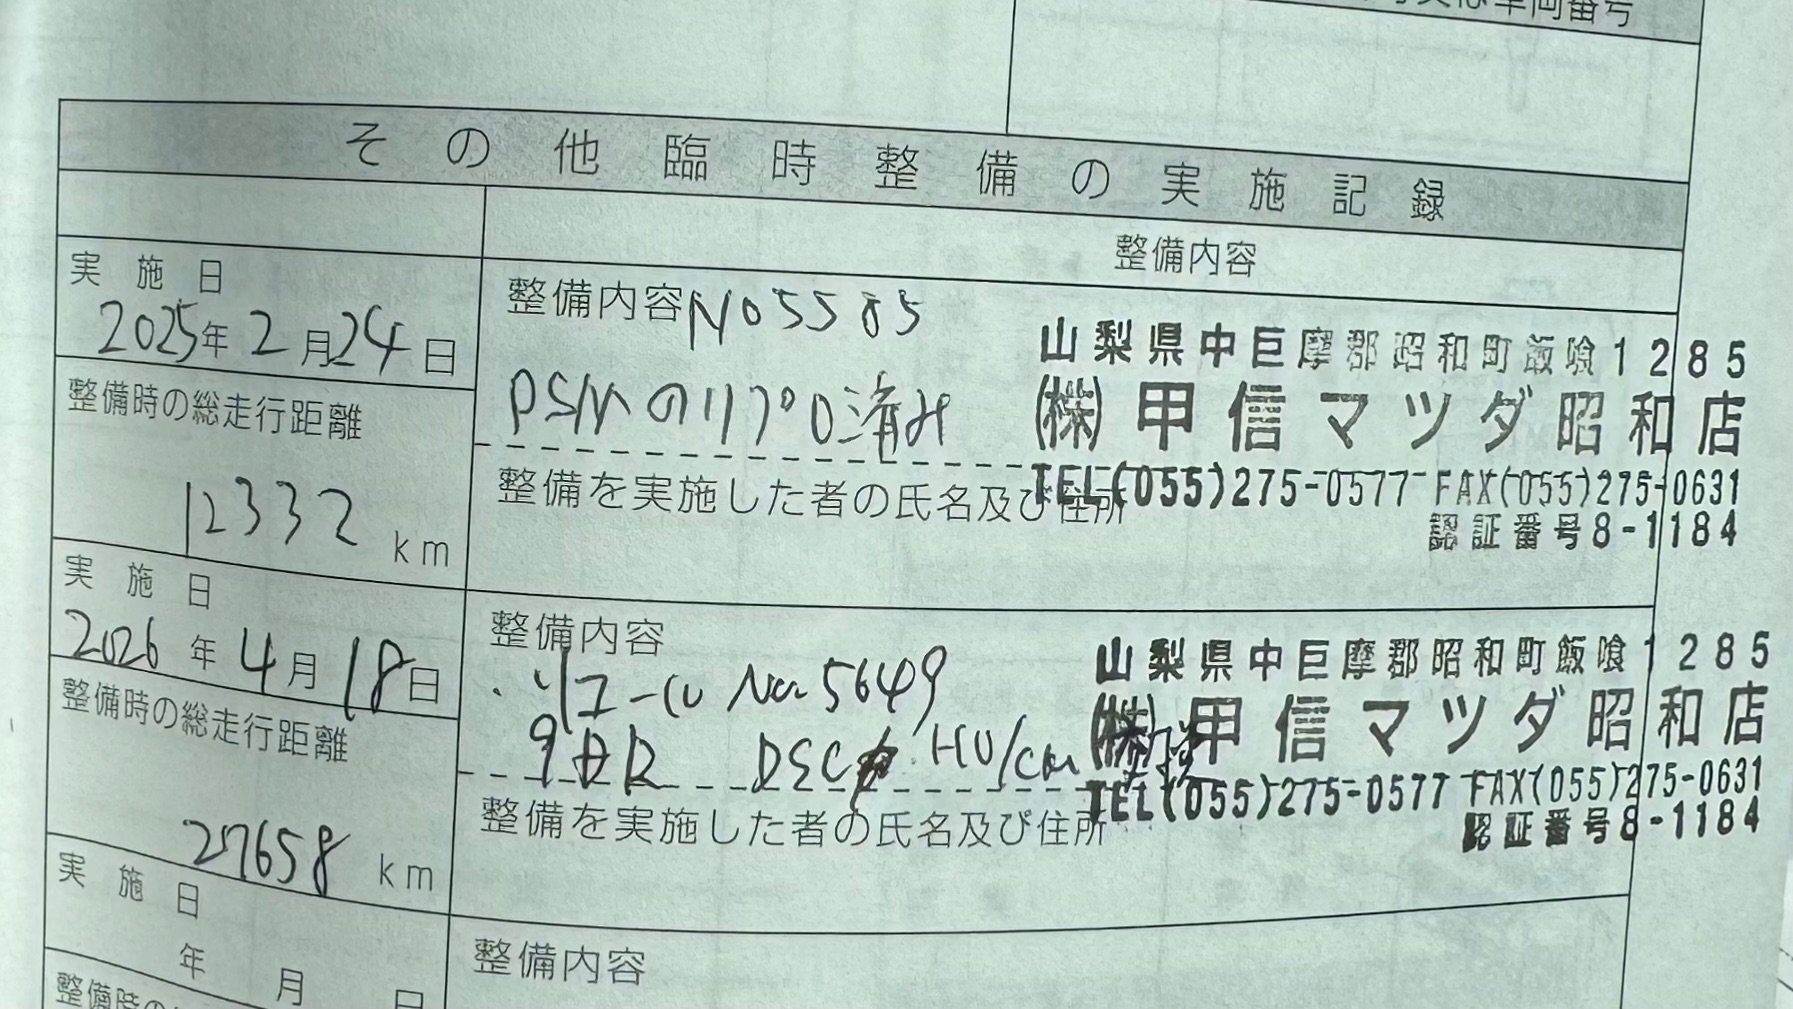 車両番号
その他臨時整備の実施記録
整備内容
実施日
2025年2月24日
整備内容 No5585
PSMのリプロ済み
山梨県中巨摩郡昭和町飯喰1285
㈱甲信マツダ昭和店
TEL(055)275-0577 FAX(055)275-0631
認証番号8-1184
整備時の総走行距離
12332 km
整備を実施した者の氏名及び住所
実施日
2026年4月18日
整備内容
・リコール No.5649
DSC HU/CM
山梨県中巨摩郡昭和町飯喰1285
㈱甲信マツダ昭和店
TEL(055)275-0577 FAX(055)275-0631
認証番号8-1184
整備時の総走行距離
27658 km
整備を実施した者の氏名及び住所
実施日
年 月 日
整備内容
整備時の